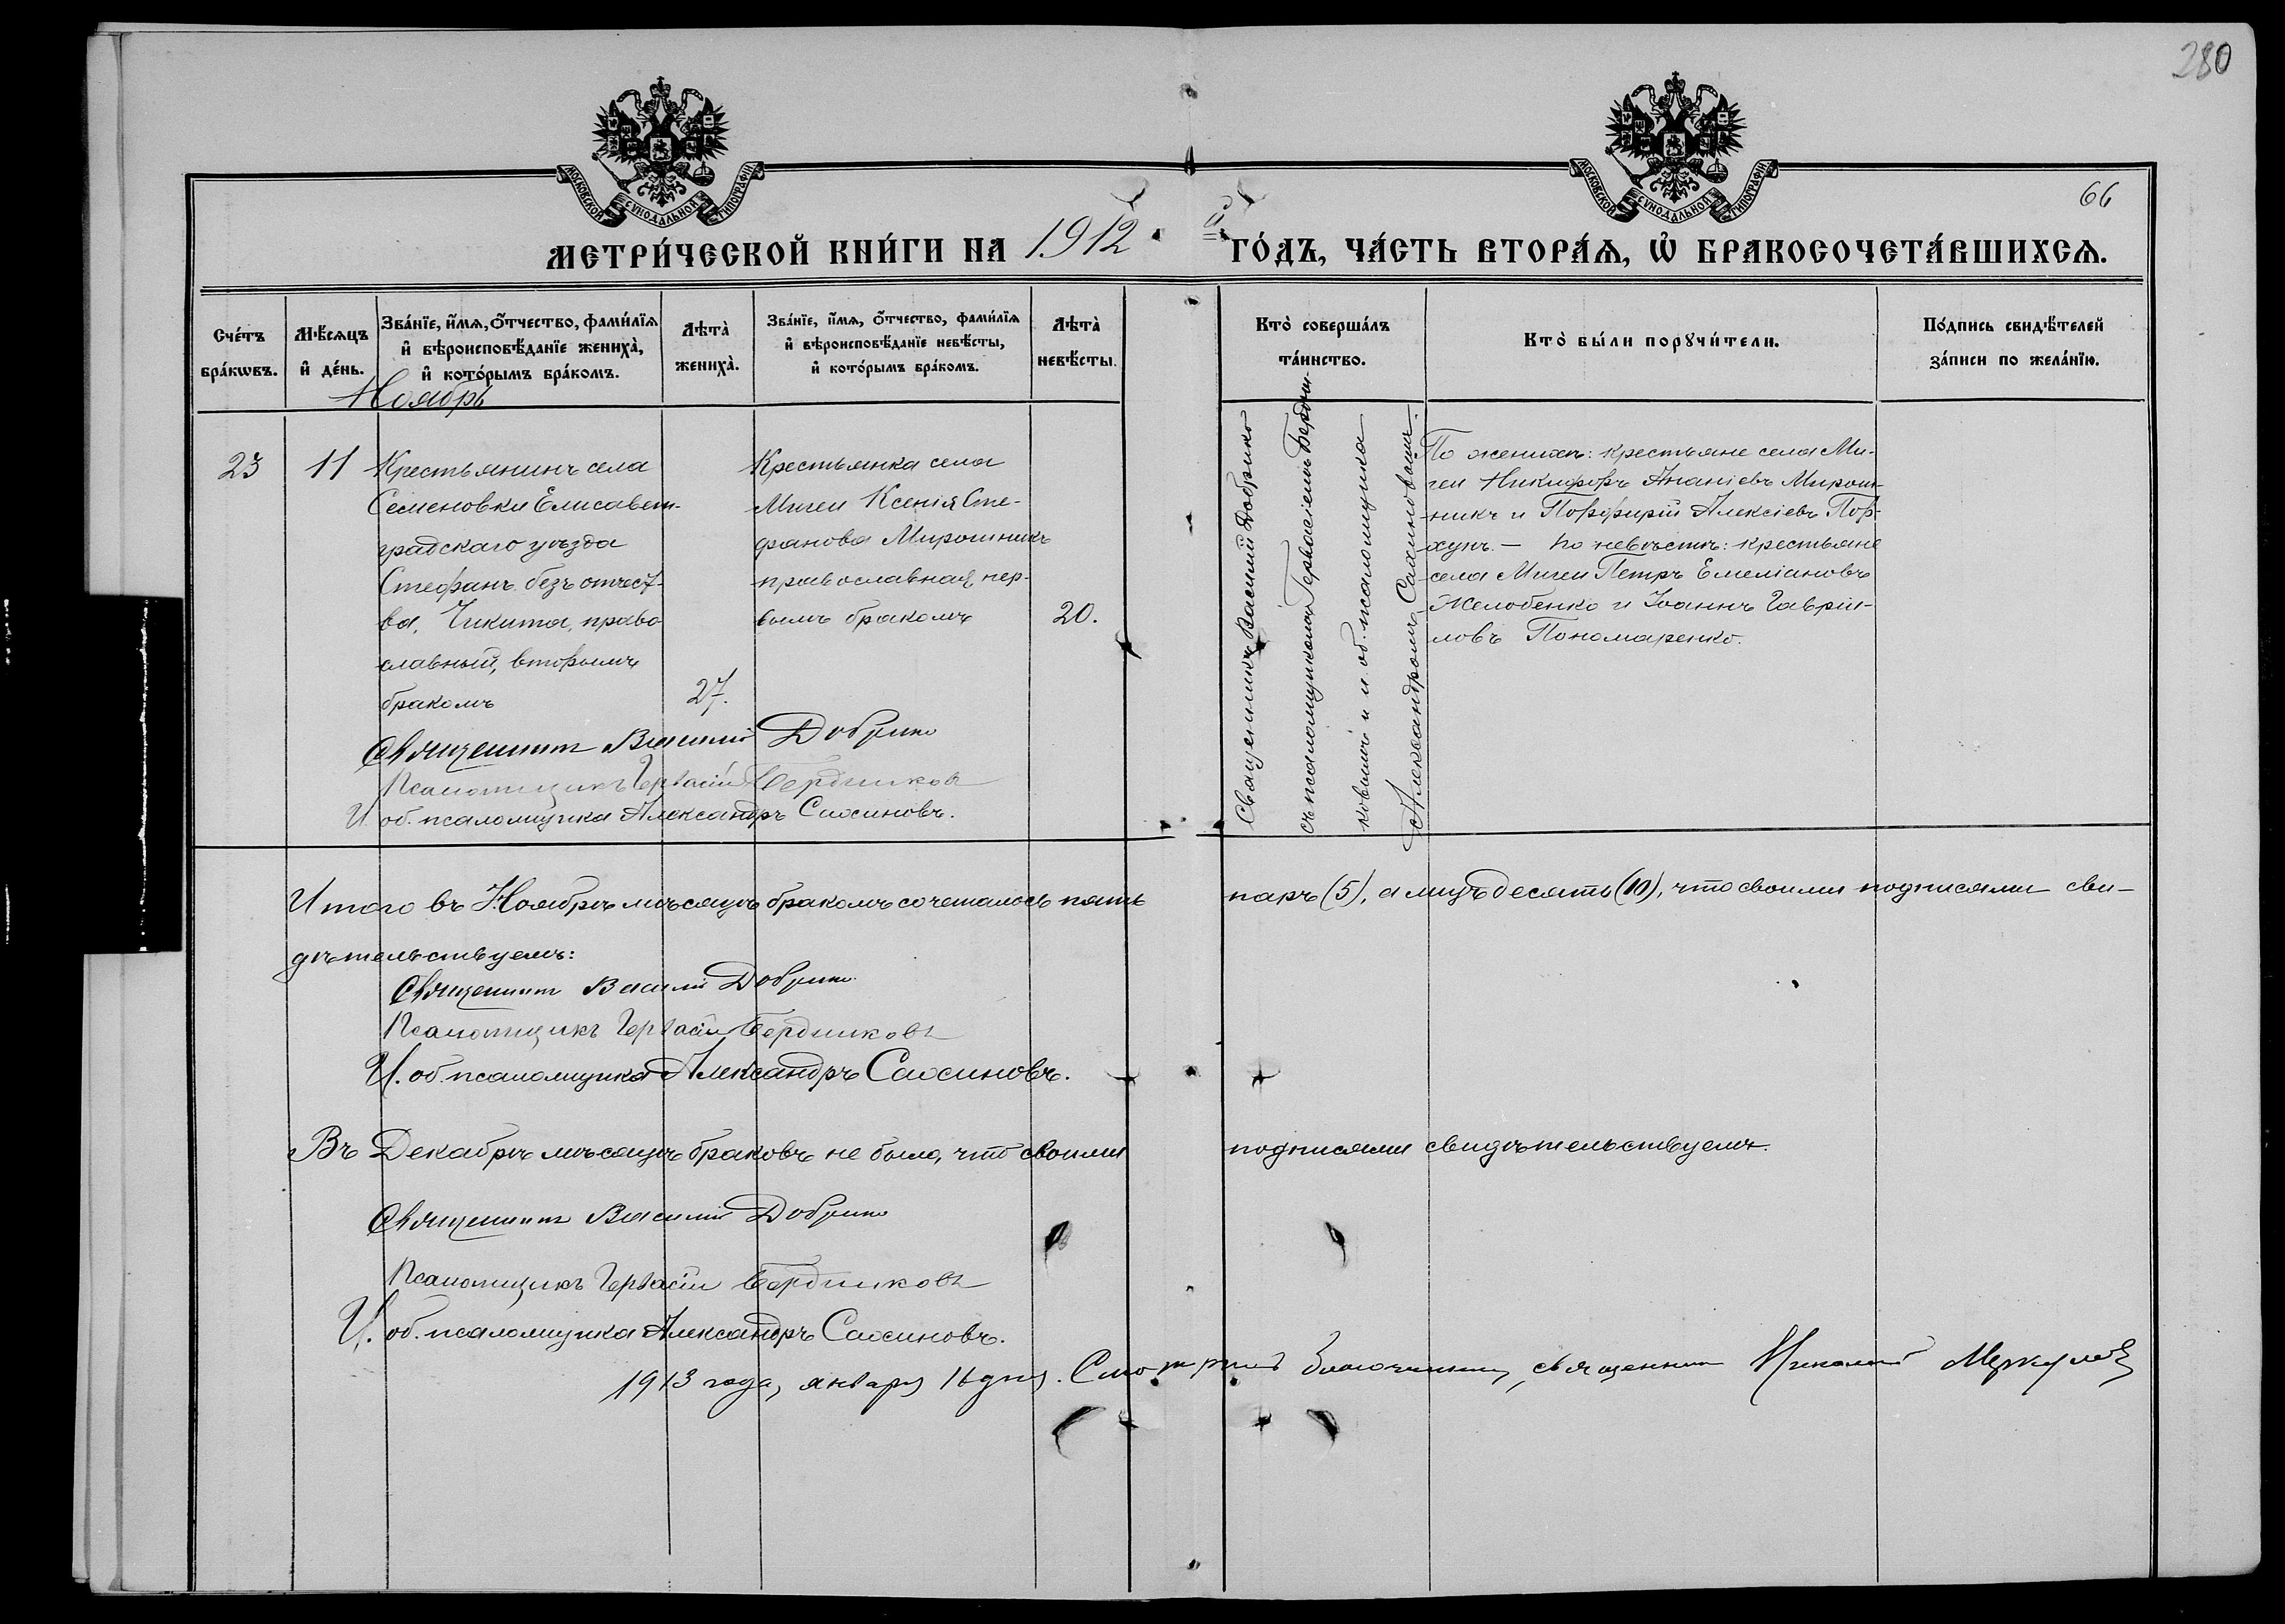 280
66
МОСКОВСКОЙ СѴНОДАЛЬНОЙ ТИПОГРАФІИ
МОСКОВСКОЙ СѴНОДАЛЬНОЙ ТИПОГРАФІИ
МЕТРИ́ЧЕСКОЙ КНИ́ГИ НА 1912й ГО́ДЪ, ЧА́СТЬ ВТОРА́Ѧ, Ѡ҆ БРАКОСОЧЕТА́ВШИХСѦ.
Сче́тъ бра́кѡвъ.
Мѣ́сяцъ и҆ де́нь.
Зва́нїе, и҆́мѧ, ѻ҆́тчество, фами́лїѧ
и҆ вѣроисповѣ́данїе жениха̀,
и҆ кото́рымъ бра́комъ.
Лѣта̀ жениха̀.
Зва́нїе, и҆́мѧ, ѻ҆́тчество, фами́лїѧ
и҆ вѣроисповѣ́данїе невѣ́сты,
и҆ кото́рымъ бра́комъ.
Лѣта̀ невѣ́сты.
Кто̀ соверша́лъ
та́инство.
Кто̀ бы́ли порꙋчи́тели.
По́дпись свидѣ́телей
за́писи по жела́нїю.
Ноябрь
23
11
Крестьянинъ села
Семеновки Елисавет-
градскаго уѣзда
Стефанъ безъ отчест-
ва, Чикита, право
славный, вторымъ
бракомъ
27.
Крестьянка села
Мигеи Ксенія Сте-
фанова Мирошникъ
православная, пер-
вымъ бракомъ
20.
Священникъ Василій Добрино
съ псаломщикомъ Гервасіемъ Бердни-
ковымъ и и. об. псаломщика
Александромъ Сахиновымъ.
По женихѣ: крестьяне села Ми-
геи Никифоръ Ананіевъ Мирош-
никъ и Порфирій Алексіевъ Пор-
хунъ. — По невѣстѣ: крестьяне
села Мигеи Петръ Емеліановъ
Желобенко и Іоаннъ Гаврии-
ловъ Пономаренко.
Священникъ Василій Добрино
Псаломщикъ Гервасій Бердниковъ
И. об. псаломщика Александръ Сахиновъ.
Итого въ Ноябрѣ мѣсяцѣ бракомъ сочеталось пять паръ (5), а лицъ десять (10), что своими подписями сви-
дѣтельствуемъ:
Священникъ Василій Добрино
Псаломщикъ Гервасій Бердниковъ
И. об. псаломщика Александръ Сахиновъ.
Въ Декабрѣ мѣсяцѣ браковъ не было, что своими подписями свидѣтельствуемъ.
Священникъ Василій Добрино
Псаломщикъ Гервасій Бердниковъ
И. об. псаломщика Александръ Сахиновъ.
1913 года, января 16 дня. Смотрилъ благочинный, священникъ Николай Меркулов